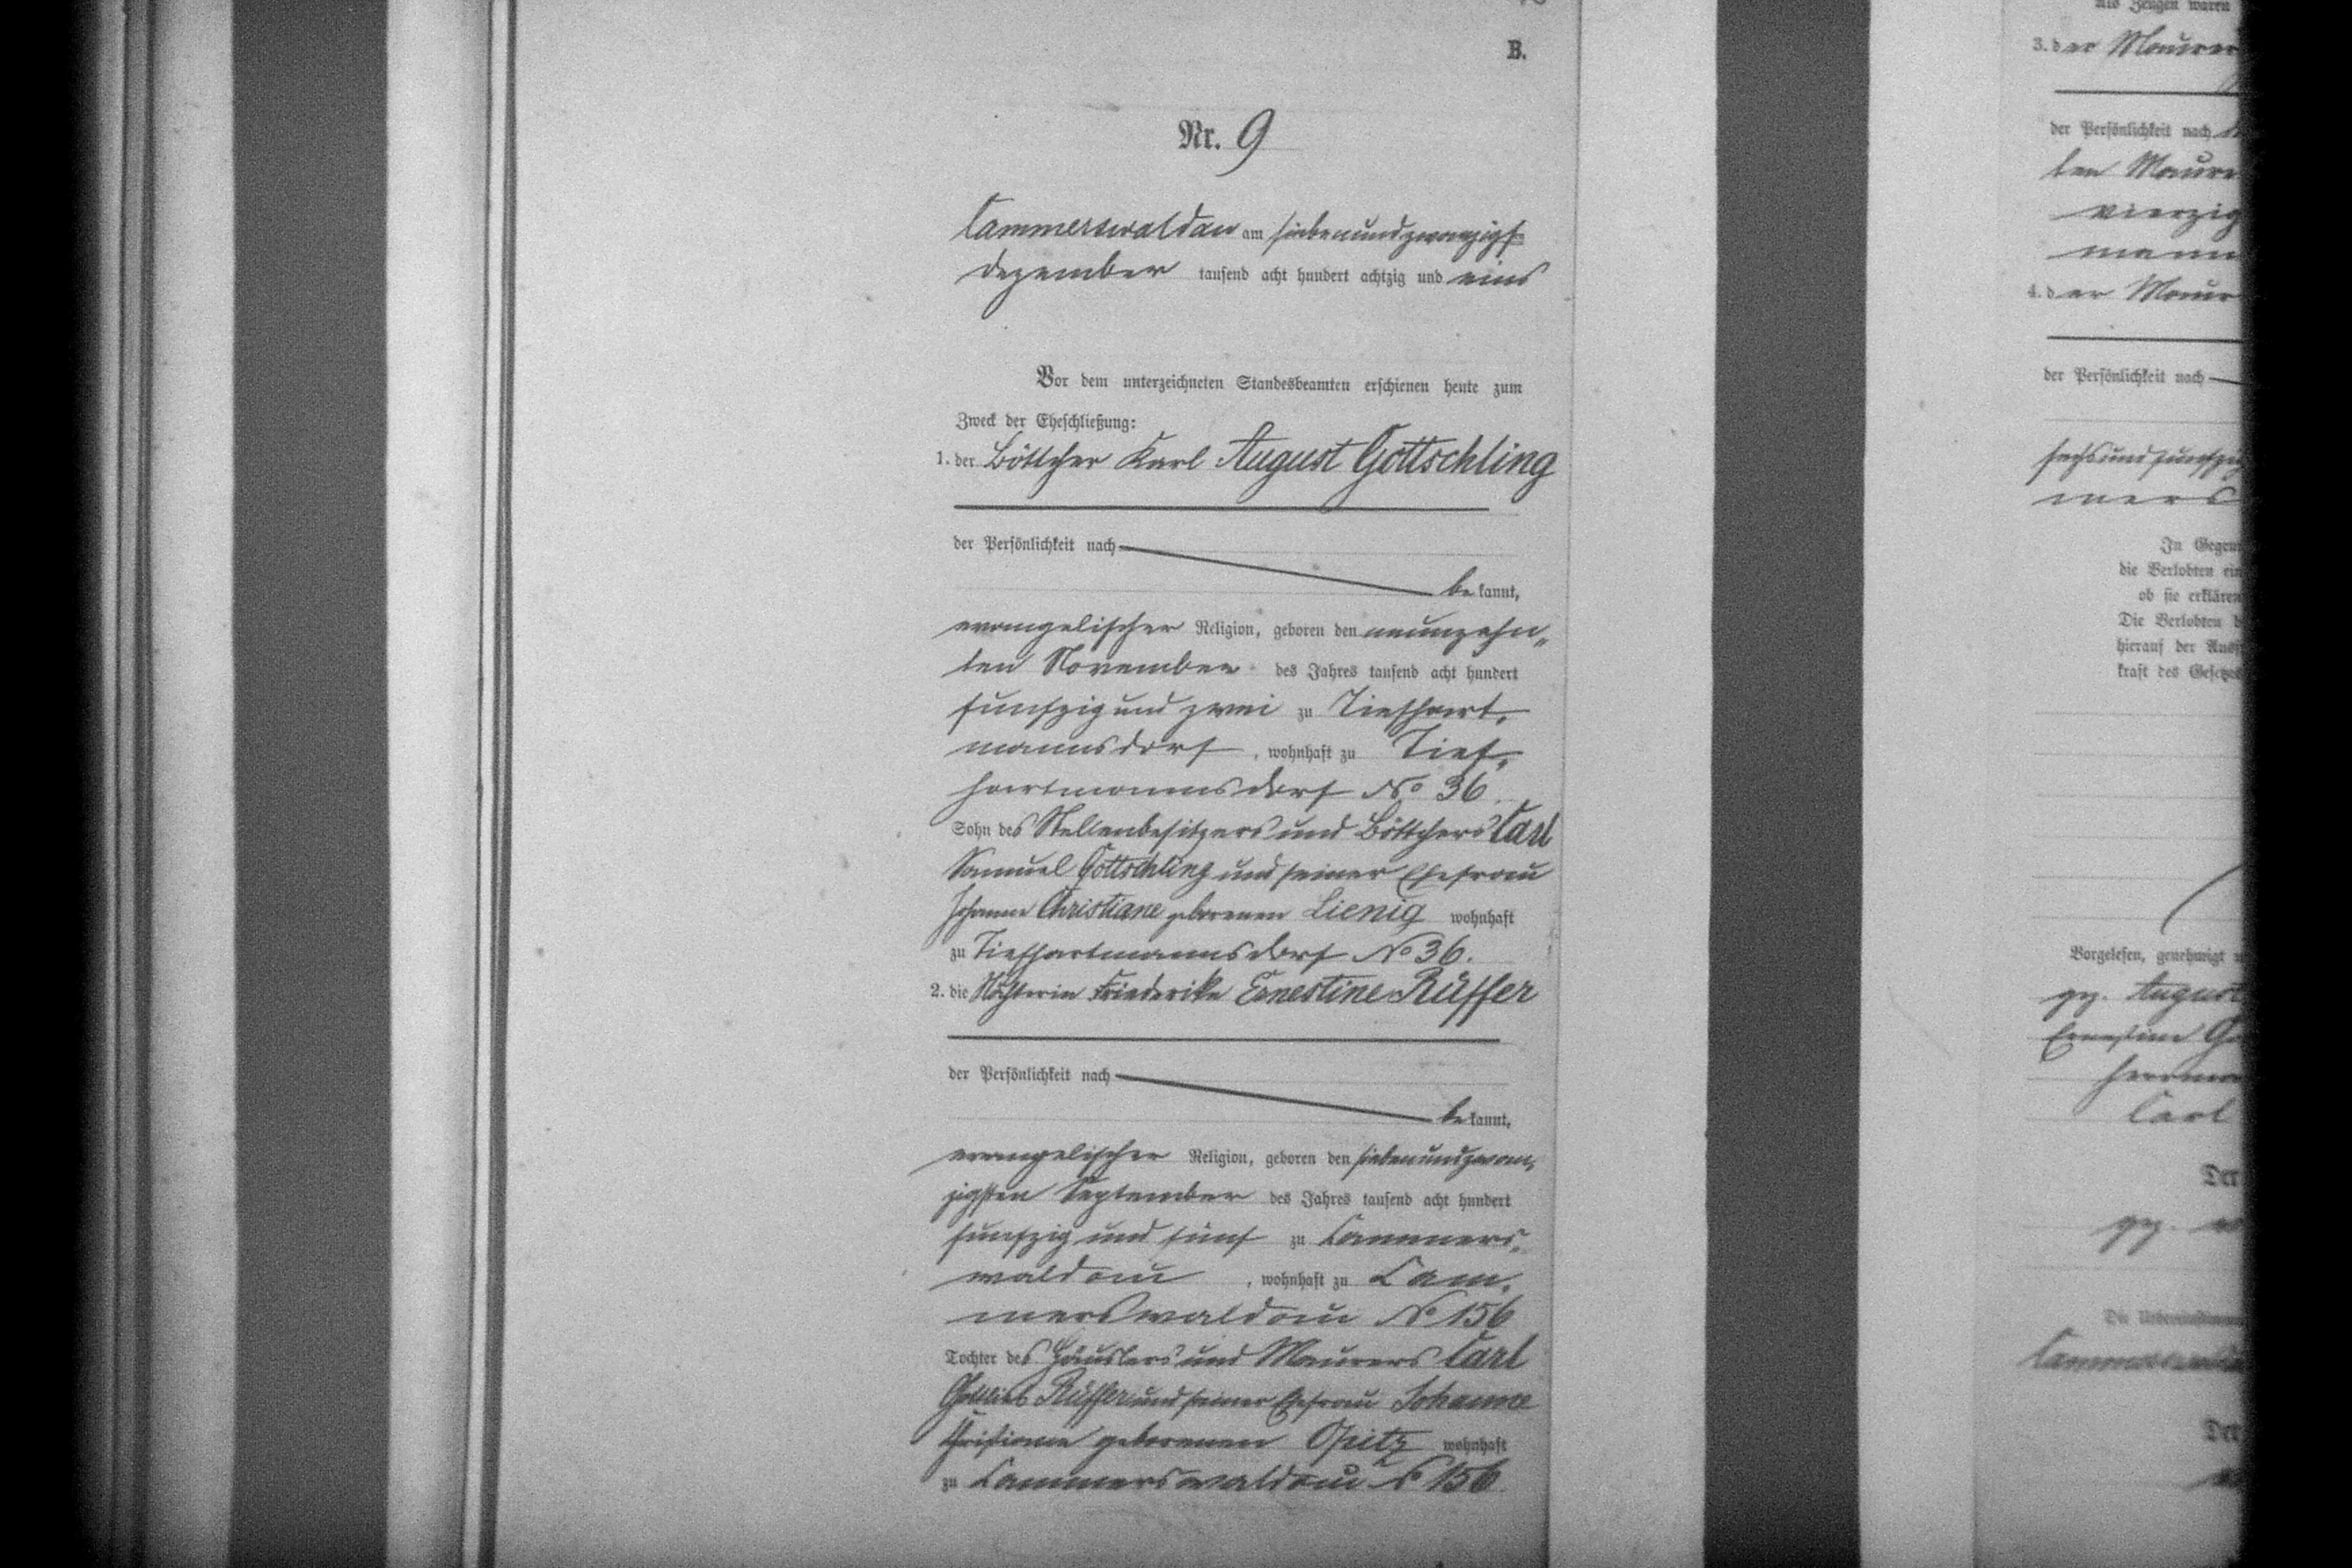 B.
Nr. 9
Cammerswaldau am siebenundzwanzigst
Dezember tausend acht hundert achtzig und eins
Vor dem unterzeichneten Standesbeamten erschienen heute zum
Zweck der Eheschließung:
1. der Böttcher Karl August Gottschling
der Persönlichkeit nach
be kannt,
evangelischer Religion, geboren den neunzehn„
ten November des Jahres tausend acht hundert
funfzig und zwei zu Tiefhart„
mannsdorf, wohnhaft zu Tief„
hartmannsdorf No 36
Sohn des Stellenbesitzers und Böttchers Carl
Samuel Gottschling und seiner Ehefrau
Johanne Christiane geborenen Lienig wohnhaft
zu Tiefhartmannsdorf No 36.
2. die Friederike Ernestine Rüffer
der Persönlichkeit nach
be kannt,
evangelischer Religion, geboren den siebenundzwan„
zigsten September des Jahres tausend acht hundert
funfzig und fünf zu Cammers„
waldau, wohnhaft zu Cam„
merswaldau No 156
Tochter des Häuslers und Maurers Carl
Gottlieb Rüffer und seiner Ehefrau Johanne
Christiane geborenen Opitz wohnhaft
zu Cammerswaldau No 156
Als Zeugen waren
3. der Maurer
der Persönlichkeit nach
ten Maure
vierzig
mann
4. der Maur
der Persönlichkeit nach
sechsundfunfzig
mers
In Gegen
die Verlobten ein
ob sie erklären
Die Verlobten
hierauf der Auss
kraft des Gesetzes
Vorgelesen, genehmigt
gez. August
Ernestine Go
Herrma
Carl
Der
gez.
Die Uebereinstimm
Cammerswalda
Der